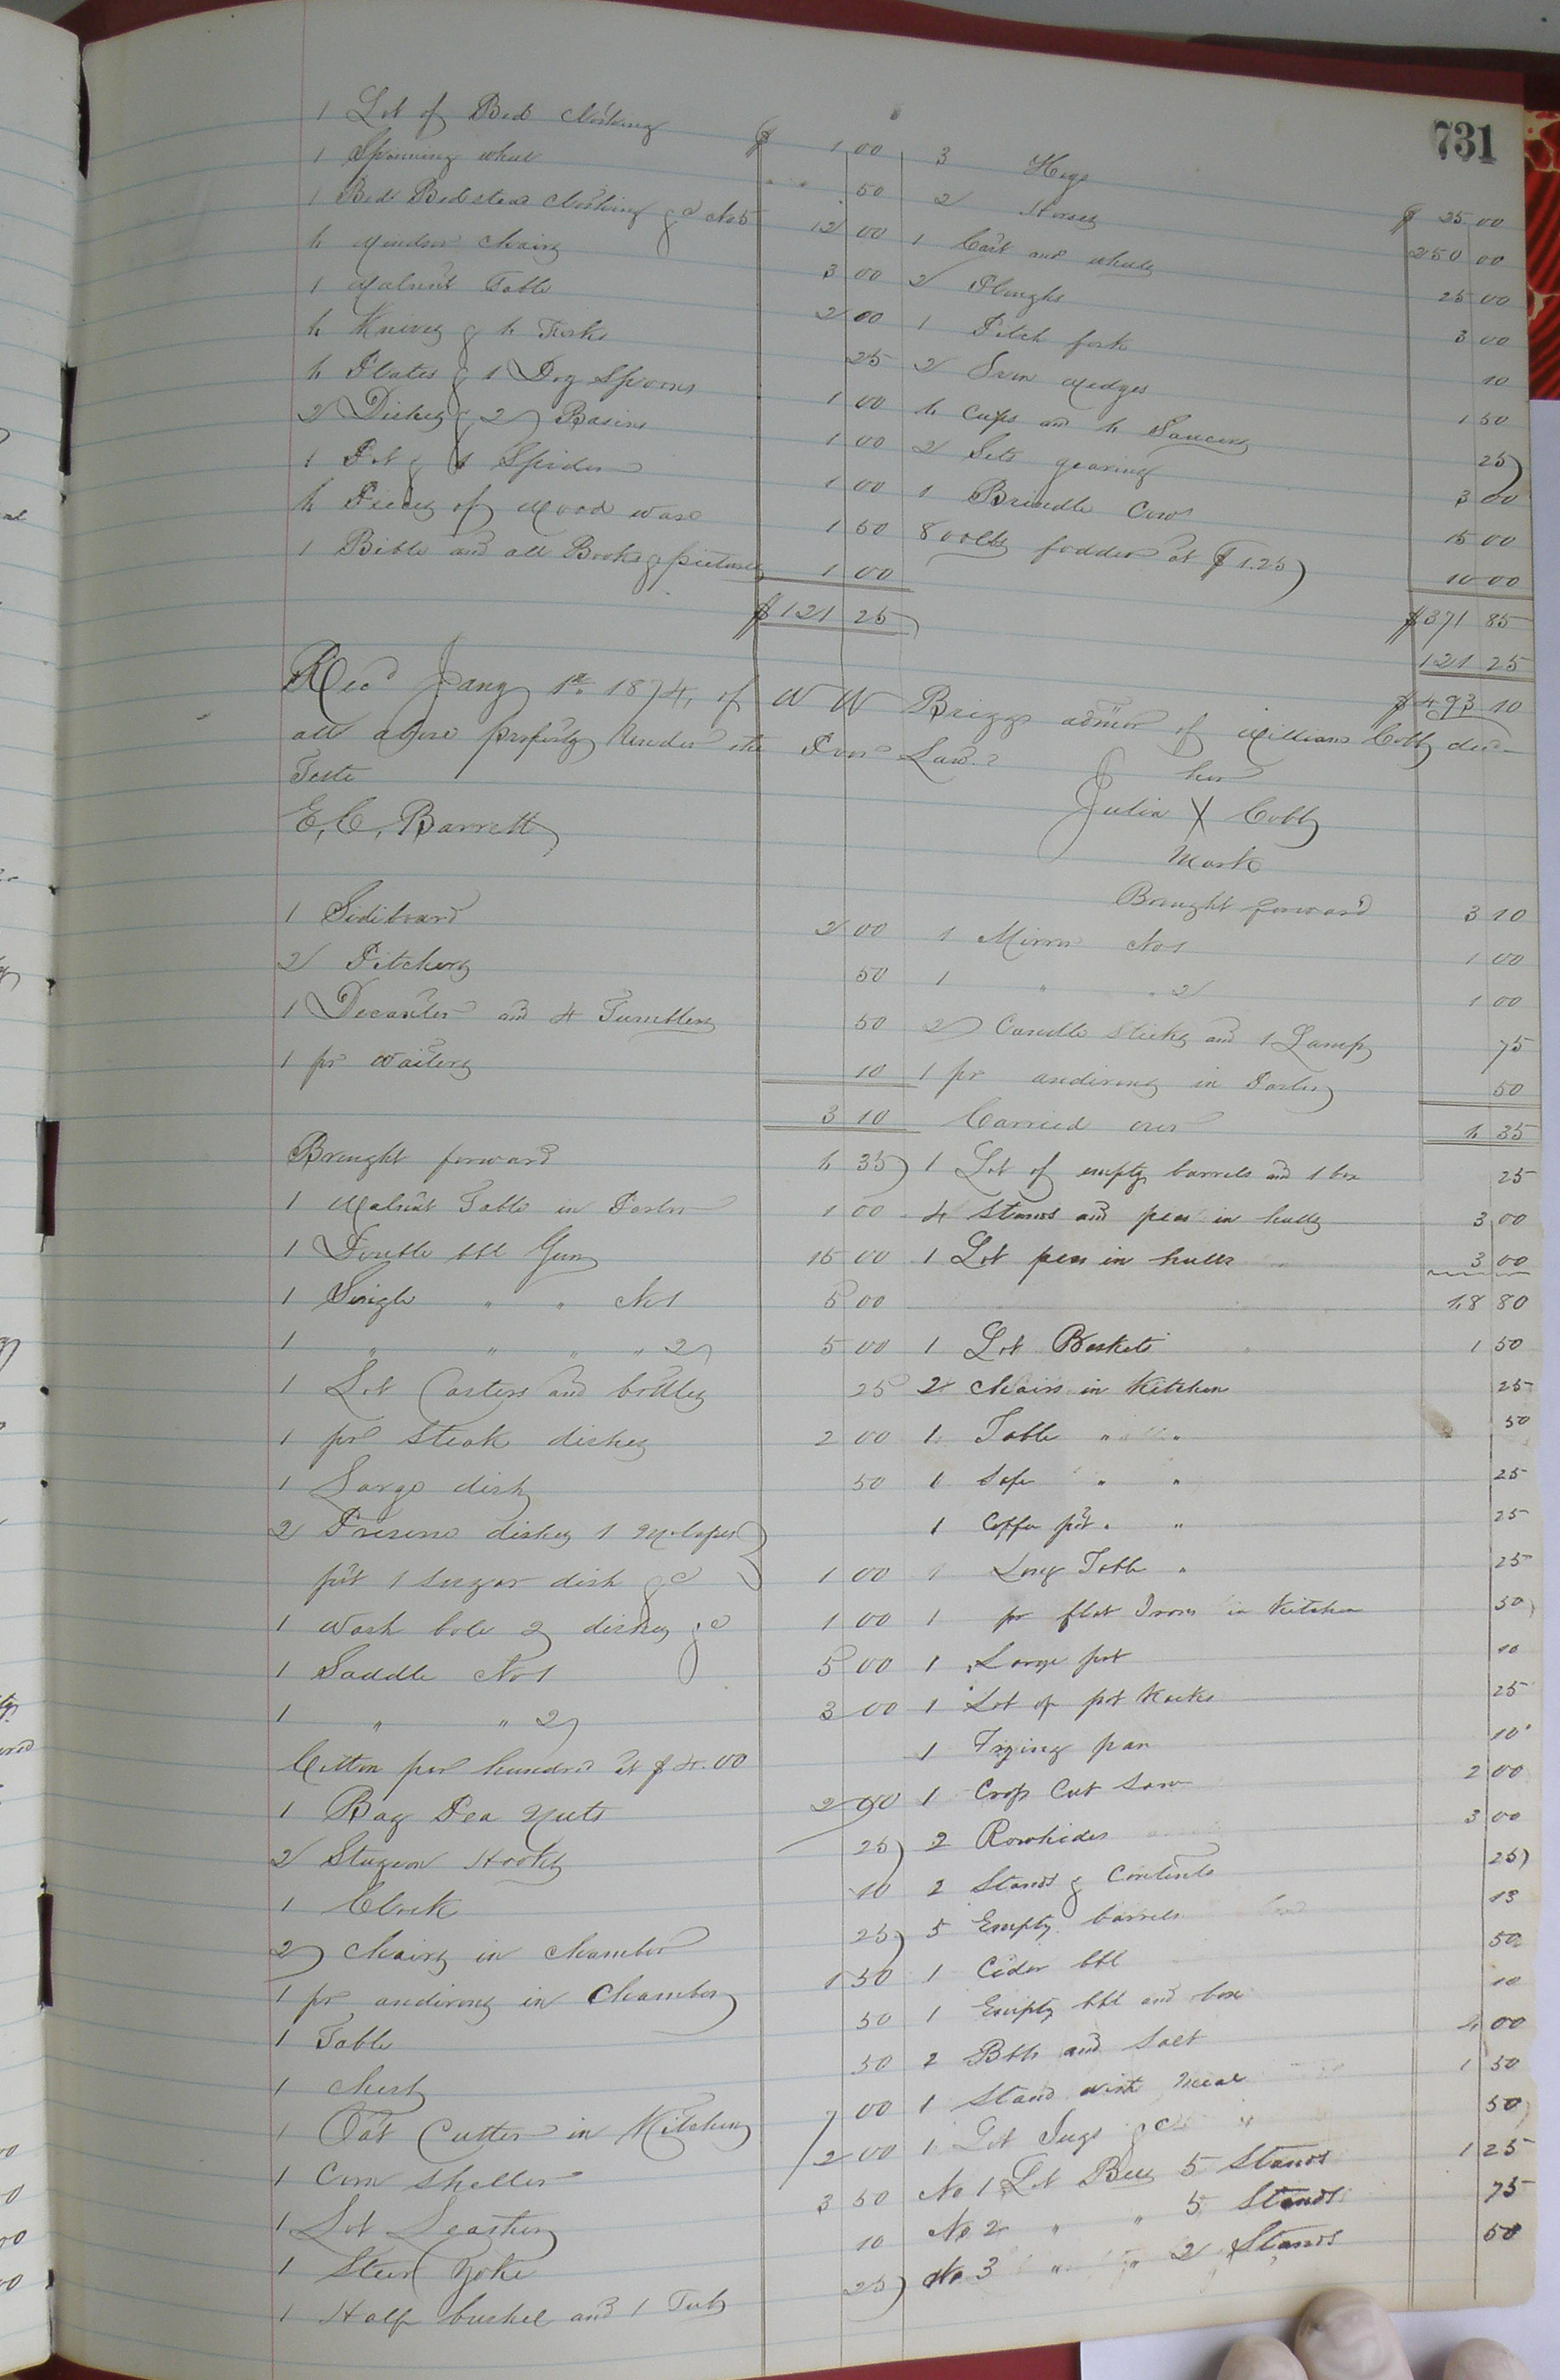 731
1 Lot of Bed Clothing $ 1 00
1 Spinning wheel 50
1 Bed Bedstead Clothing &c No 5 12 00
4 Windsor Chairs 3 00
1 Walnut Table 2 00
4 Knives & 4 Forks 25
4 Plates & 1 Doz Spoons 1 00
2 Dishes & 2 Basins 1 00
1 Pot & 1 Spider 1 00
4 Pieces of Wood ware 1 50
1 Bible and all Books & pictures 1 00
$121 25
3 Hogs $ 25 00
2 Horses 250 00
1 Cart and wheels 25 00
2 Ploughs 3 00
1 Pitch fork 10
2 Iron Wedges 1 50
4 Cups and 4 Saucers 25
2 Sets gearing 3 00
1 Brindle Cow 15 00
800 lbs fodder at $1.25 10 00
$371 85
121 25
$493 10
Recd Jany 1st 1874, of W W Briggs admor of William Cobb decd
all above property under the Poor Law.
Teste her
E, C, Barrett Julia X Cobb
Mark
1 Sidiboard 2 00
2 Pitchers 50
1 Decanter and 4 Tumblers 50
1 pr Waiters 10
3 10
Brought forward 3 10
1 Mirror No 1 1 00
1 " " 2 1 00
2 Candle sticks and 1 Lamp 75
1 pr andirons in Parlor 50
Carried over 4 35
Brought forward 4 35
1 Walnut Table in Parlor 1 00
1 Double bbl Gun 15 00
1 Single " " No 1 5 00
1 " " " " 2 5 00
1 Lot Casters and bottles 25
1 pr Steak dishes 2 00
1 Large dish 50
2 Preserve dishes 1
pot 1 Sugar dish &c 1 00
1 Wash bole 2 dishes &c 1 00
1 Saddle No 1 5 00
1 " " 2 3 00
Cotton per hundred at $4.00
1 Bag Pea Nuts 2 00
2 Stugeon Hooks 25
1 Clock 10
2 Chairs in Chamber 25
1 pr andirons in Chamber 1 50
1 Table 50
1 Chest 50
1 Oat Cutter in Kitchen 7 00
1 Corn Sheller 2 00
1 Lot Leather 3 50
1 Steer Yoke 10
1 Half bushel and 1 Tub 25
1 Lot of empty barrels and 1 box 25
4 Stands and peas in hulls 3 00
1 Lot peas in hulls 3 00
48 80
1 Lot Baskets 1 50
2 Chairs in Kitchen 25
1 Table " " 50
1 Safe " " 25
1 Coffee pot " " 25
1 Long Table " 25
1 pr flat Irons in Kitchen 50
1 Large pot 10
1 Lot of pot Racks 25
1 Frying pan 10
1 Cross Cut Saw 2 00
2 Rawhides 3 00
2 Stands & Contents 25
5 Empty barrels 13
1 Cider bbl 50
1 Empty bbl and box 10
2 Bbls and Salt 4 00
1 Stand with Meal 1 50
1 Lot Jugs &c 50
No 1 Lot Bees 5 Stands 1 25
No 2 " " 5 Stands 75
No 3 " " 2 Stands 50